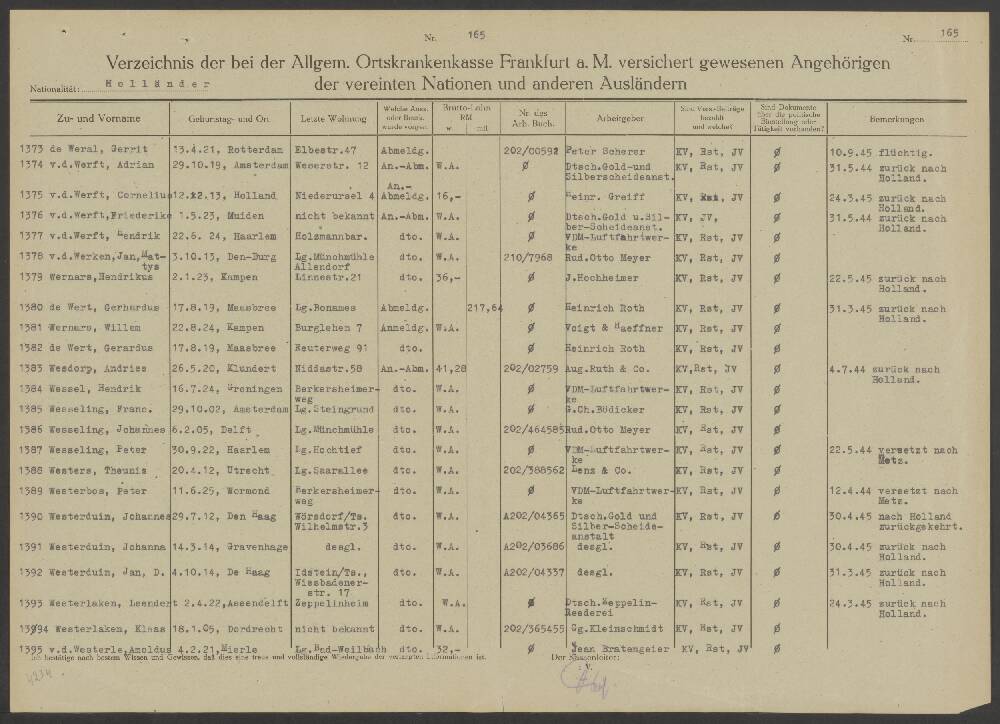 Nr. 165
Nr. 165
Verzeichnis der bei der Allgem. Ortskrankenkasse Frankfurt a. M. versichert gewesenen Angehörigen
der vereinten Nationen und anderen Ausländern
Nationalität: Holländer
Zu- und Vorname Geburtstag- und Ort Letzte Wohnung Welche Ausw. oder Bezin. wurde vorgel. Brutto-Lohn RM w mtl Nr. des Arb. Buch. Arbeitgeber Sind Vers.-Beiträge bezahlt und welche? Sind Dokumente über die politische Einstellung oder Tätigkeit vorhanden? Bemerkungen
1373 de Weral, Gerrit 13.4.21, Rotterdam Elbestr.47 Abmeldg. 202/00592 Peter Scherer KV, Rst, JV ø 10.9.45 flüchtig.
1374 v.d.Werft, Adrian 29.10.19, Amsterdam Weserstr. 12 An.-Abm. W.A. ø Dtsch.Gold-und KV, Rst, JV ø 31.5.44 zurück nach
Silberscheideanst. Holland.
An.-
1375 v.d.Werft, Cornelius 12.12.13, Holland Niederursel 4 Abmeldg. 16,- ø Heinr. Greiff KV, Rst, JV ø 24.3.45 zurück nach
Holland.
1376 v.d.Werft,Friederike 1.5.23, Muiden nicht bekannt An.-Abm. W.A. ø Dtsch.Gold u.Sil- KV, JV, ø 31.5.44 zurück nach
ber-Scheideanst. Holland.
1377 v.d.Werft, Hendrik 22.6. 24, Haarlem Holzmannbar. dto. W.A. ø VDM-Luftfahrtwer- KV, Rst, JV ø
ke
1378 v.d.Werken,Jan,Mat- 3.10.13, Den-Burg Lg.Münchmühle dto. W.A. 210/7968 Rud.Otto Meyer KV, Rst, JV ø
tys Allendorf
1379 Wernars,Hendrikus 2.1.23, Kampen Linnestr.21 dto. 36,- ø J.Hochheimer KV, Rst, JV ø 22.5.45 zurück nach
Holland.
1380 de Wert, Gerhardus 17.8.19, Maasbree Lg.Bonames Abmeldg. 217,64 ø Heinrich Roth KV, Rst, JV ø 31.3.45 zurück nach
Holland.
1381 Wernars, Willem 22.8.24, Kampen Burglehen 7 Anmeldg. W.A. ø Voigt & Haeffner KV, Rst, JV ø
1382 de Wert, Gerardus 17.8.19, Maasbree Reuterweg 91 dto. ø Heinrich Roth KV, Rst, JV ø
1383 Wesdorp, Andries 26.5.20, Klundert Niddastr.58 An.-Abm. 41,28 202/02759 Aug.Ruth & Co. KV,Rst, JV ø 4.7.44 zurück nach
Holland.
1384 Wessel, Hendrik 16.7.24, Groningen Berkersheimer- dto. W.A. ø VDM-Luftfahrtwer- KV, Rst, JV ø
weg ke
1385 Wesseling, Franc. 29.10.02, Amsterdam Lg.Steingrund dto. W.A. ø G.Ch.Bödicker KV, Rst, JV ø
1386 Wesseling, Johannes 6.2.05, Delft Lg.Münchmühle dto. W.A. 202/464585 Rud.Otto Meyer KV, Rst, JV ø
1387 Wesseling, Peter 30.9.22, Haarlem Lg.Hochtief dto. W.A. ø VDM-Luftfahrtwer- KV, Rst, JV ø 22.5.44 versetzt nach
ke Metz.
1388 Westers, Theunis 20.4.12, Utrecht Lg.Saarallee dto. W.A. 202/388562 Benz & Co. KV, Rst, JV ø
1389 Westerbos, Peter 11.6.25, Wormond Berkersheimer- dto. W.A. ø VDM-Luftfahrtwer- KV, Rst, JV ø 12.4.44 versetzt nach
weg ke Metz.
1390 Westerduin, Johannes 29.7.12, Den Haag Wörsdorf/Ts. dto. W.A. A202/04365 Dtsch.Gold und KV, Rst, JV ø 30.4.45 nach Holland
Wilhelmstr.3 Silber-Scheide- zurückgekehrt.
anstalt
1391 Westerduin, Johanna 14.3.14, Gravenhage desgl. dto. W.A. A202/03686 desgl. KV, Rst, JV ø 30.4.45 zurück nach
Holland.
1392 Westerduin, Jan, D. 4.10.14, De Haag Idstein/Ts., dto. W.A. A202/04337 desgl. KV, Rst, JV ø 31.3.45 zurück nach
Wiesbadener- Holland.
str. 17
1393 Westerlaken, Leendert 2.4.22,Assendelft Zeppelinheim dto. W.A. ø Dtsch.Zeppelin- KV, Rst, JV ø 24.3.45 zurück nach
Reederei Holland.
13994 Westerlaken, Klaas 18.1.05, Dordrecht nicht bekannt dto. W.A. 202/365455 Gg.Kleinschmidt KV, Rst, JV ø
1395 v.d.Westerle,Amoldus 4.2.21,Hierle Lg.Bad-Weilbach dto. 32,- ø Jean Bratengeier KV, Rst, JV ø
Ich bestätige nach bestem Wissen und Gewissen, daß dies eine treue und vollständige Wiedergabe der verlangten Informationen ist. Der Kassenleiter:
I. V.
4234